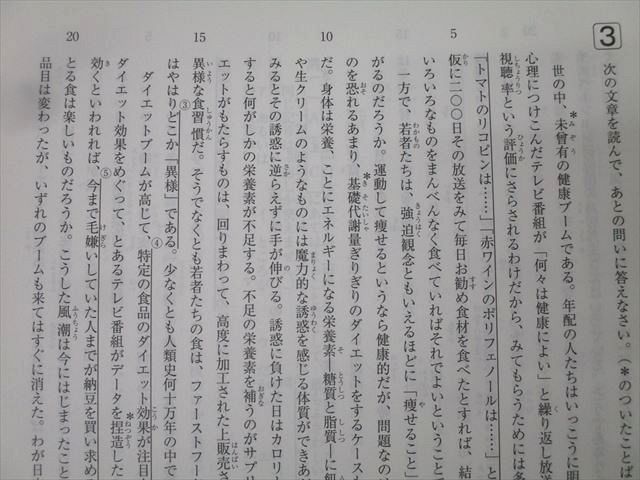 3
次の文章を読んで、あとの問いに答えなさい。(＊のついたことば
世の中、＊未曾有の健康ブームである。年配の人たちはいっこうに明
心理につけこんだテレビ番組が「何々は健康によい」と繰り返し放送
視聴率という評価にさらされるわけだから、みてもらうためには多
「トマトのリコピンは……」「赤ワインのポリフェノールは……」と
仮に二〇〇日その放送をみて毎日お勧め食材を食べたとすれば、結
いろいろなものをまんべんなく食べていればそれでよいということで
一方で、若者たちは、強迫観念ともいえるほどに「痩せること」
がるのだろうか。運動して痩せるというなら健康的だが、問題なのは
のを恐れるあまり、＊基礎代謝量ぎりぎりのダイエットをするケース
だ。身体は栄養、ことにエネルギーになる栄養素―糖質と脂質―に飢
や生クリームのようなものには魔力的な誘惑を感じる体質ができあ
みるとその誘惑に逆らえずに手が伸びる。誘惑に負けた日はカロリ
すると何がしかの栄養素が不足する。不足の栄養素を補うのがサプリ
エットがもたらすものは、回りまわって、高度に加工された上販売さ
異様な食習慣だ。そうでなくとも若者たちの食は、ファーストフー
③はやはりどこか「異様」である。少なくとも人類史何十万年の中で
ダイエットブームが高じて、④特定の食品のダイエット効果が注目
ダイエット効果をめぐって、とあるテレビ番組がデータを＊捏造した
効くといわれれば、⑤今まで毛嫌いしていた人までが納豆を買い求め
とる食は楽しいものだろうか。こうした風潮は今にはじまったこと
品目は変わったが、いずれのブームも来てはすぐに消えた。わが日
5
10
15
20